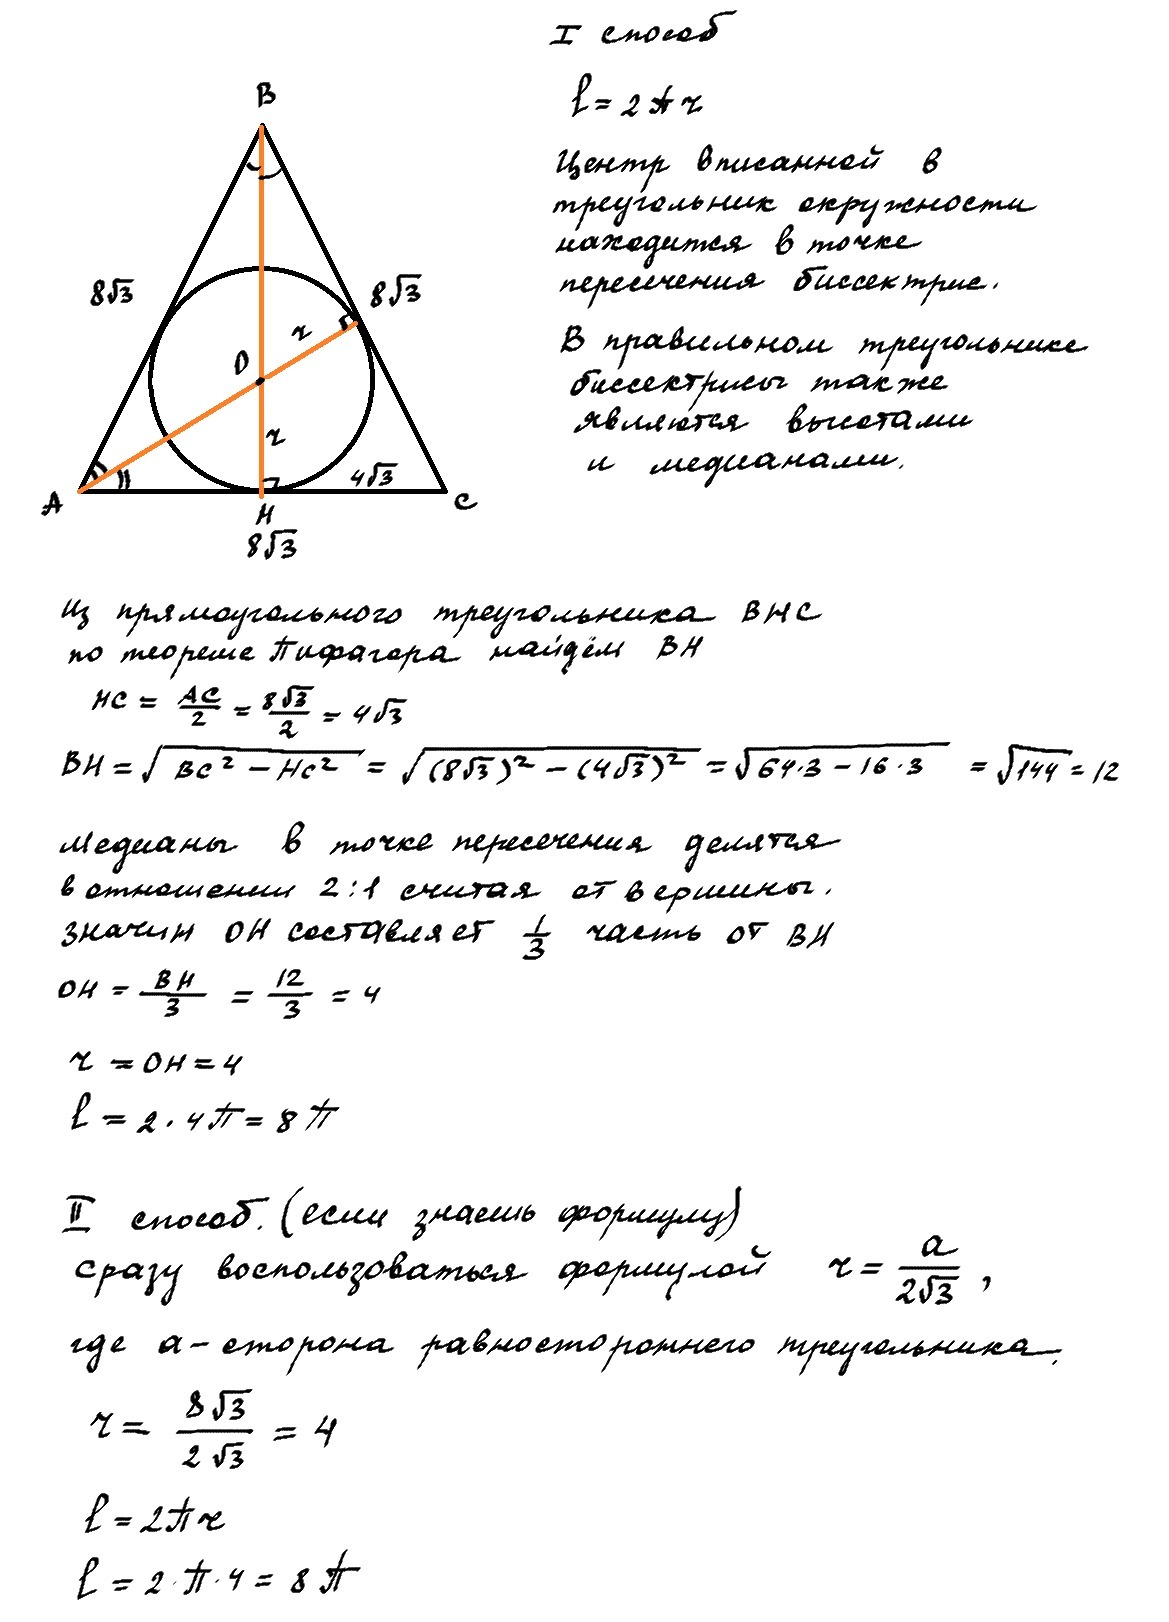 I способ
l = 2πr
Центр вписанной в
треугольник окружности
находится в точке
пересечения биссектрис.
В правильном треугольнике
биссектрисы также
являются высотами
и медианами.
B
8√3
8√3
r
O
r
4√3
A
H
C
8√3
Из прямоугольного треугольника BHC
по теореме Пифагора найдём BH
HC = AC/2 = 8√3/2 = 4√3
BH = √(BC² - HC²) = √((8√3)² - (4√3)²) = √(64·3 - 16·3) = √144 = 12
Медианы в точке пересечения делятся
в отношении 2:1 считая от вершины.
Значит OH составляет 1/3 часть от BH
OH = BH/3 = 12/3 = 4
r = OH = 4
l = 2·4π = 8π
II способ. (если знаешь формулу)
сразу воспользоваться формулой r = a/(2√3),
где a - сторона равностороннего треугольника.
r = 8√3/(2√3) = 4
l = 2πr
l = 2·π·4 = 8π